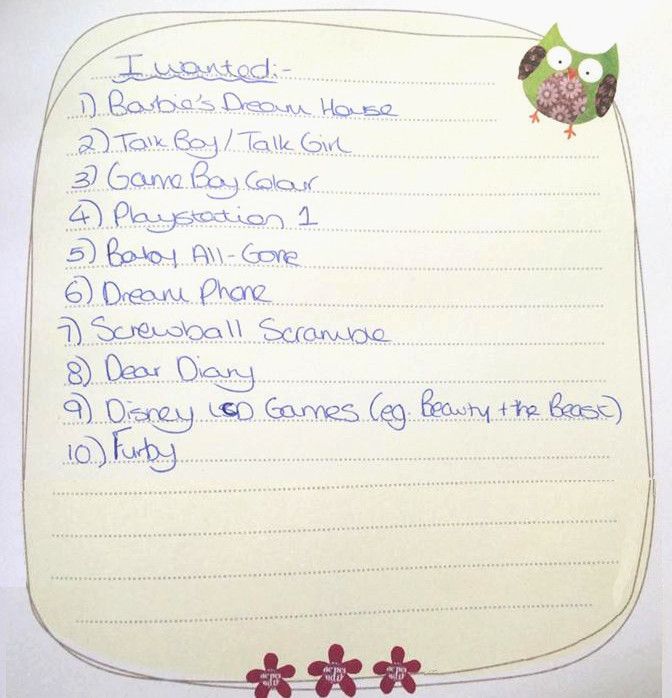 I wanted:-
1) Barbie's Dream House
2) Talk Boy / Talk Girl
3) Game Boy Colour
4) Playstation 1
5) Baby All-Gone
6) Dream Phone
7) Screwball Scramble
8) Dear Diary
9) Disney LCD Games (eg. Beauty + the Beast)
10) Furby